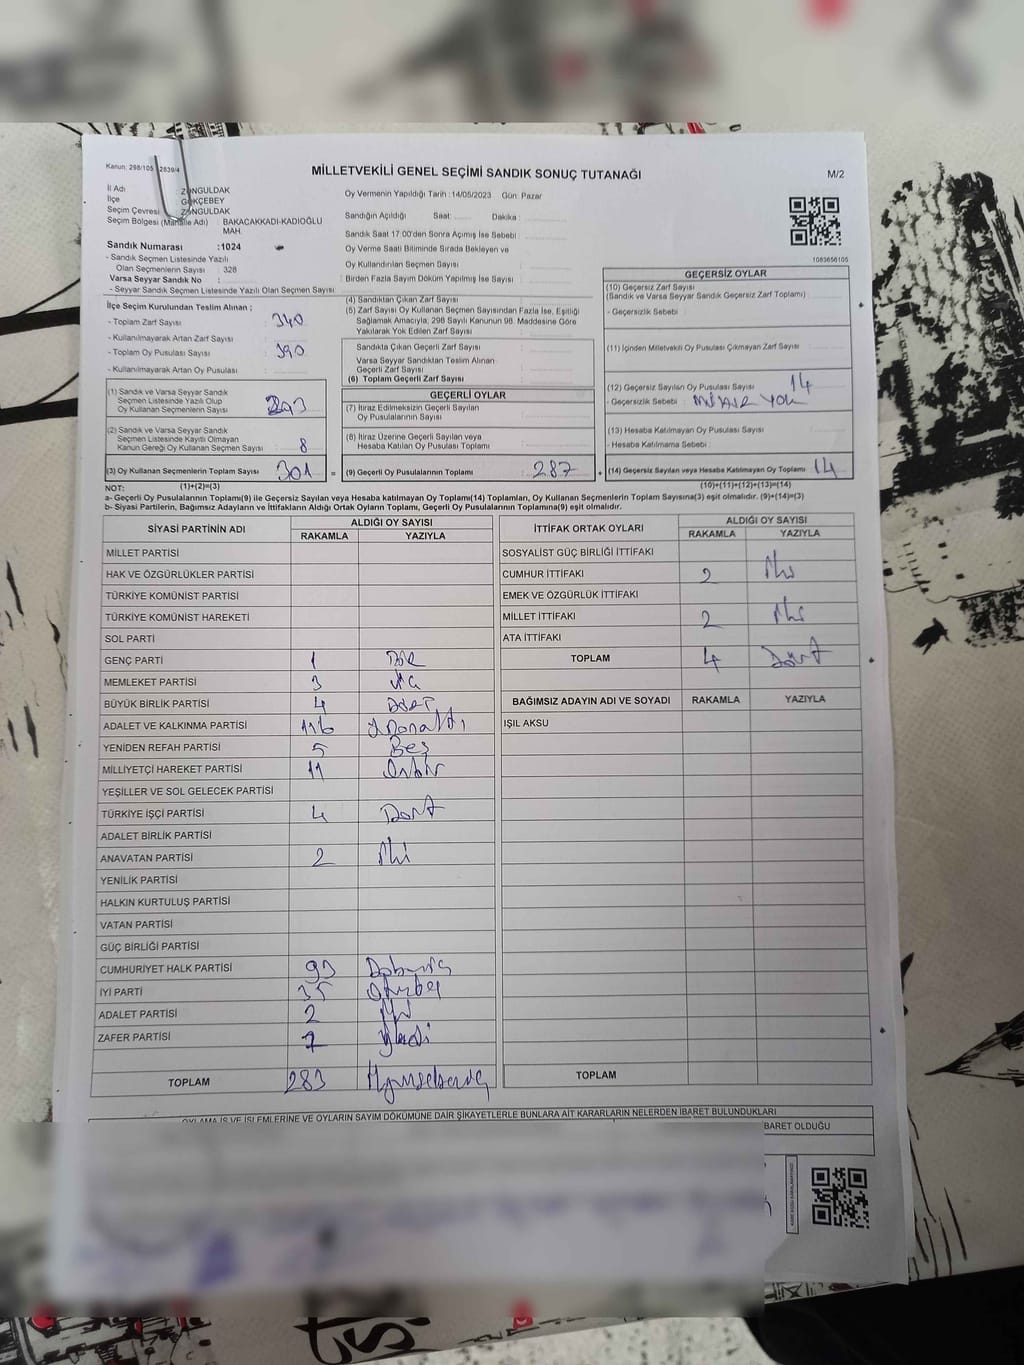 Kanun: 298/105 2839/4
MİLLETVEKİLİ GENEL SEÇİMİ SANDIK SONUÇ TUTANAĞI
M/2
İl Adı : ZONGULDAK
İlçe : GÖKÇEBEY
Seçim Çevresi : ZONGULDAK
Seçim Bölgesi (Mahalle Adı) : BAKACAKKADI-KADIOĞLU
MAH.
Sandık Numarası :1024
- Sandık Seçmen Listesinde Yazılı
Olan Seçmenlerin Sayısı : 328
Varsa Seyyar Sandık No :
- Seyyar Sandık Seçmen Listesinde Yazılı Olan Seçmen Sayısı :
Oy Vermenin Yapıldığı Tarih :14/05/2023 Gün: Pazar
Sandığın Açıldığı Saat: Dakika :
Sandık Saat 17:00'den Sonra Açımış İse Sebebi :
Oy Verme Saati Bitiminde Sırada Bekleyen ve
Oy Kullandırılan Seçmen Sayısı
Birden Fazla Sayım Döküm Yapılmış İse Sayısı :
1083656105
İlçe Seçim Kurulundan Teslim Alınan ;
- Toplam Zarf Sayısı : 340
- Kullanılmayarak Artan Zarf Sayısı :
- Toplam Oy Pusulası Sayısı : 390
- Kullanılmayarak Artan Oy Pusulası :
(1) Sandık ve Varsa Seyyar Sandık
Seçmen Listesinde Yazılı Olup
Oy Kullanan Seçmenlerin Sayısı 293
(2) Sandık ve Varsa Seyyar Sandık
Seçmen Listesinde Kayıtlı Olmayan
Kanun Gereği Oy Kullanan Seçmen Sayısı 8
(3) Oy Kullanan Seçmenlerin Toplam Sayısı 301 =
(4) Sandıktan Çıkan Zarf Sayısı
(5) Zarf Sayısı Oy Kullanan Seçmen Sayısından Fazla İse, Eşitliği
Sağlamak Amacıyla; 298 Sayılı Kanunun 98. Maddesine Göre
Yakılarak Yok Edilen Zarf Sayısı
Sandıkta Çıkan Geçerli Zarf Sayısı
Varsa Seyyar Sandıktan Teslim Alınan
Geçerli Zarf Sayısı
(6) Toplam Geçerli Zarf Sayısı
GEÇERLİ OYLAR
(7) İtiraz Edilmeksizin Geçerli Sayılan
Oy Pusulalarının Sayısı
(8) İtiraz Üzerine Geçerli Sayılan veya
Hesaba Katılan Oy Pusulası Toplamı
(9) Geçerli Oy Pusulalarının Toplamı 287 +
GEÇERSİZ OYLAR
(10) Geçersiz Zarf Sayısı
(Sandık ve Varsa Seyyar Sandık Geçersiz Zarf Toplamı) :
- Geçersizlik Sebebi :
(11) İçinden Milletvekili Oy Pusulası Çıkmayan Zarf Sayısı
(12) Geçersiz Sayılan Oy Pusulası Sayısı : 14
- Geçersizlik Sebebi : MÜHÜR YOK
(13) Hesaba Katılmayan Oy Pusulası Sayısı :
- Hesaba Katılmama Sebebi :
(14) Geçersiz Sayılan veya Hesaba Katılmayan Oy Toplamı : 14
NOT: (1)+(2)=(3)
(10)+(11)+(12)+(13)=(14)
a- Geçerli Oy Pusulaları Toplamı(9) ile Geçersiz Sayılan veya Hesaba katılmayan Oy Toplamı(14) Toplamları, Oy Kullanan Seçmenlerin Toplam Sayısına(3) eşit olmalıdır. (9)+(14)=(3)
b- Siyasi Partilerin, Bağımsız Adayların ve İttifakların Aldığı Ortak Oyların Toplamı, Geçerli Oy Pusulalarının Toplamına(9) eşit olmalıdır.
SİYASİ PARTİNİN ADI ALDIĞI OY SAYISI
RAKAMLA YAZIYLA
MİLLET PARTİSİ
HAK VE ÖZGÜRLÜKLER PARTİSİ
TÜRKİYE KOMÜNİST PARTİSİ
TÜRKİYE KOMÜNİST HAREKETİ
SOL PARTİ
GENÇ PARTİ 1 BİR
MEMLEKET PARTİSİ 3 üç
BÜYÜK BİRLİK PARTİSİ 4 Dört
ADALET VE KALKINMA PARTİSİ 116 yüzonaltı
YENİDEN REFAH PARTİSİ 5 Beş
MİLLİYETÇİ HAREKET PARTİSİ 11 Onbir
YEŞİLLER VE SOL GELECEK PARTİSİ
TÜRKİYE İŞÇİ PARTİSİ 4 Dört
ADALET BİRLİK PARTİSİ
ANAVATAN PARTİSİ 2 iki
YENİLİK PARTİSİ
HALKIN KURTULUŞ PARTİSİ
VATAN PARTİSİ
GÜÇ BİRLİĞİ PARTİSİ
CUMHURİYET HALK PARTİSİ 93 Doksanüç
İYİ PARTİ 35 Otuzbeş
ADALET PARTİSİ 2 iki
ZAFER PARTİSİ 7 yedi
TOPLAM 283 ikiyüzseksenüç
İTTİFAK ORTAK OYLARI ALDIĞI OY SAYISI
RAKAMLA YAZIYLA
SOSYALİST GÜÇ BİRLİĞİ İTTİFAKI
CUMHUR İTTİFAKI 2 iki
EMEK VE ÖZGÜRLÜK İTTİFAKI
MİLLET İTTİFAKI 2 iki
ATA İTTİFAKI
TOPLAM 4 Dört
BAĞIMSIZ ADAYIN ADI VE SOYADI RAKAMLA YAZIYLA
IŞIL AKSU
TOPLAM
OYLAMA İŞ VE İŞLEMLERİNE VE OYLARIN SAYIM DÖKÜMÜNE DAİR ŞİKAYETLERLE BUNLARA AİT KARARLARIN NELERDEN İBARET BULUNDUKLARI
BARET OLDUĞU